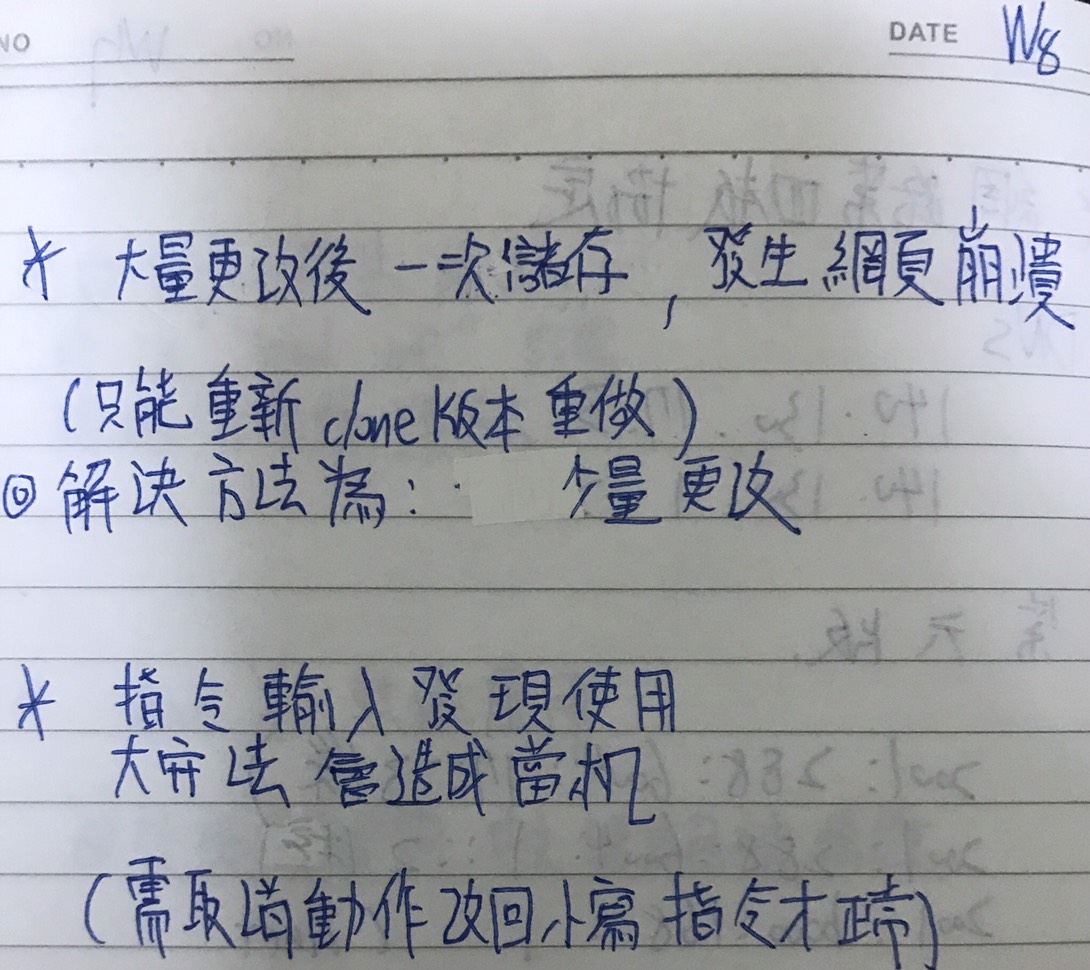 NO
DATE W8
* 大量更改後一次儲存，發生網頁崩潰
(只能重新 clone 版本重做)
◎解決方法為： 少量更改
* 指令輸入發現使用
大寫法會造成當机
(需取消動作改回小寫指令才正常)